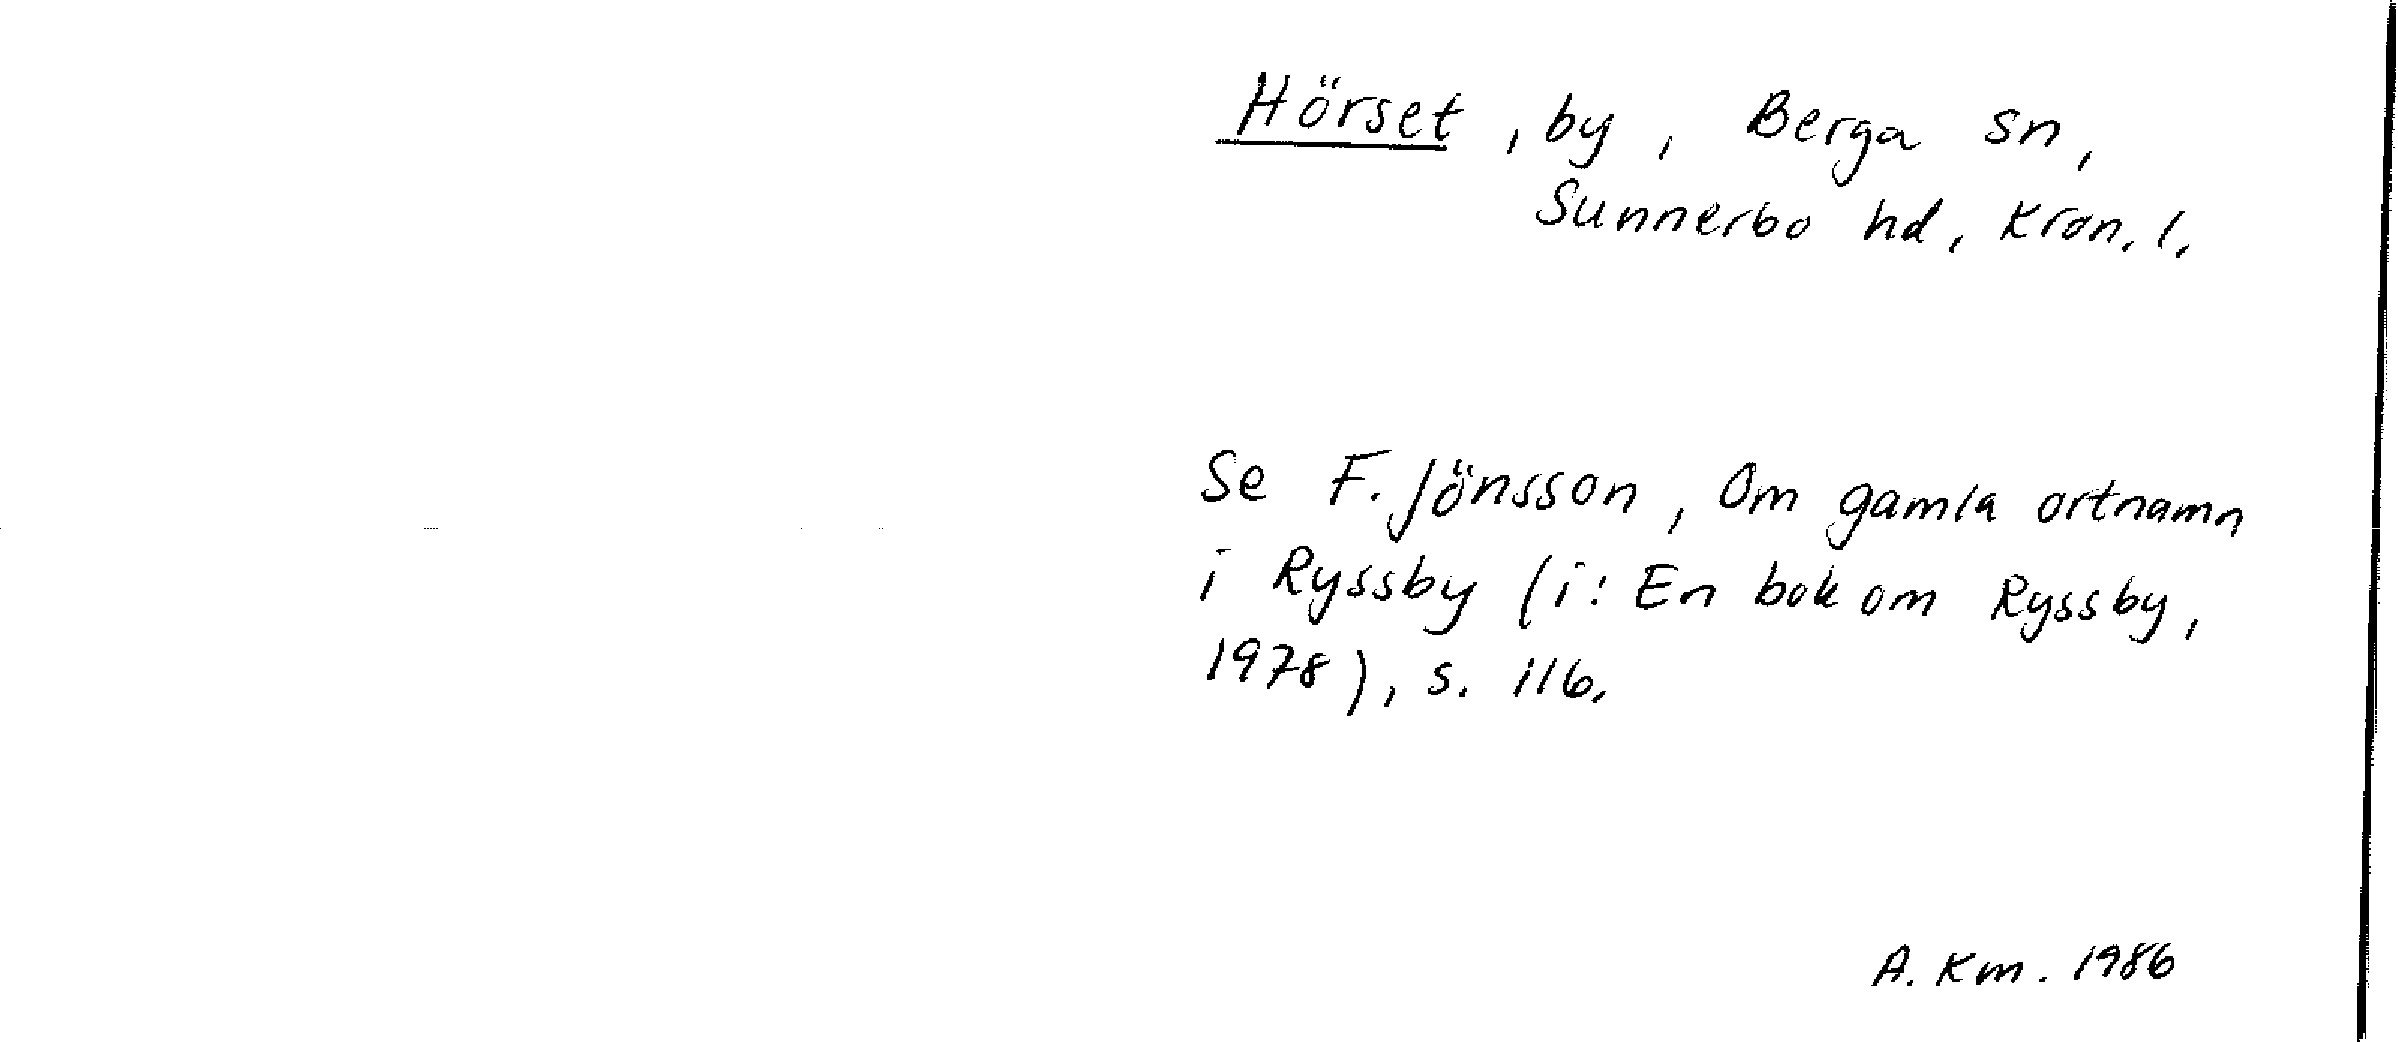 Hörset, by, Berga sn,
Sunnerbo hd, Kron. l.
Se F. Jönsson, Om gamla ortnamn
i Ryssby (i: En bok om Ryssby,
1978), s. 116.
A. Km. 1986